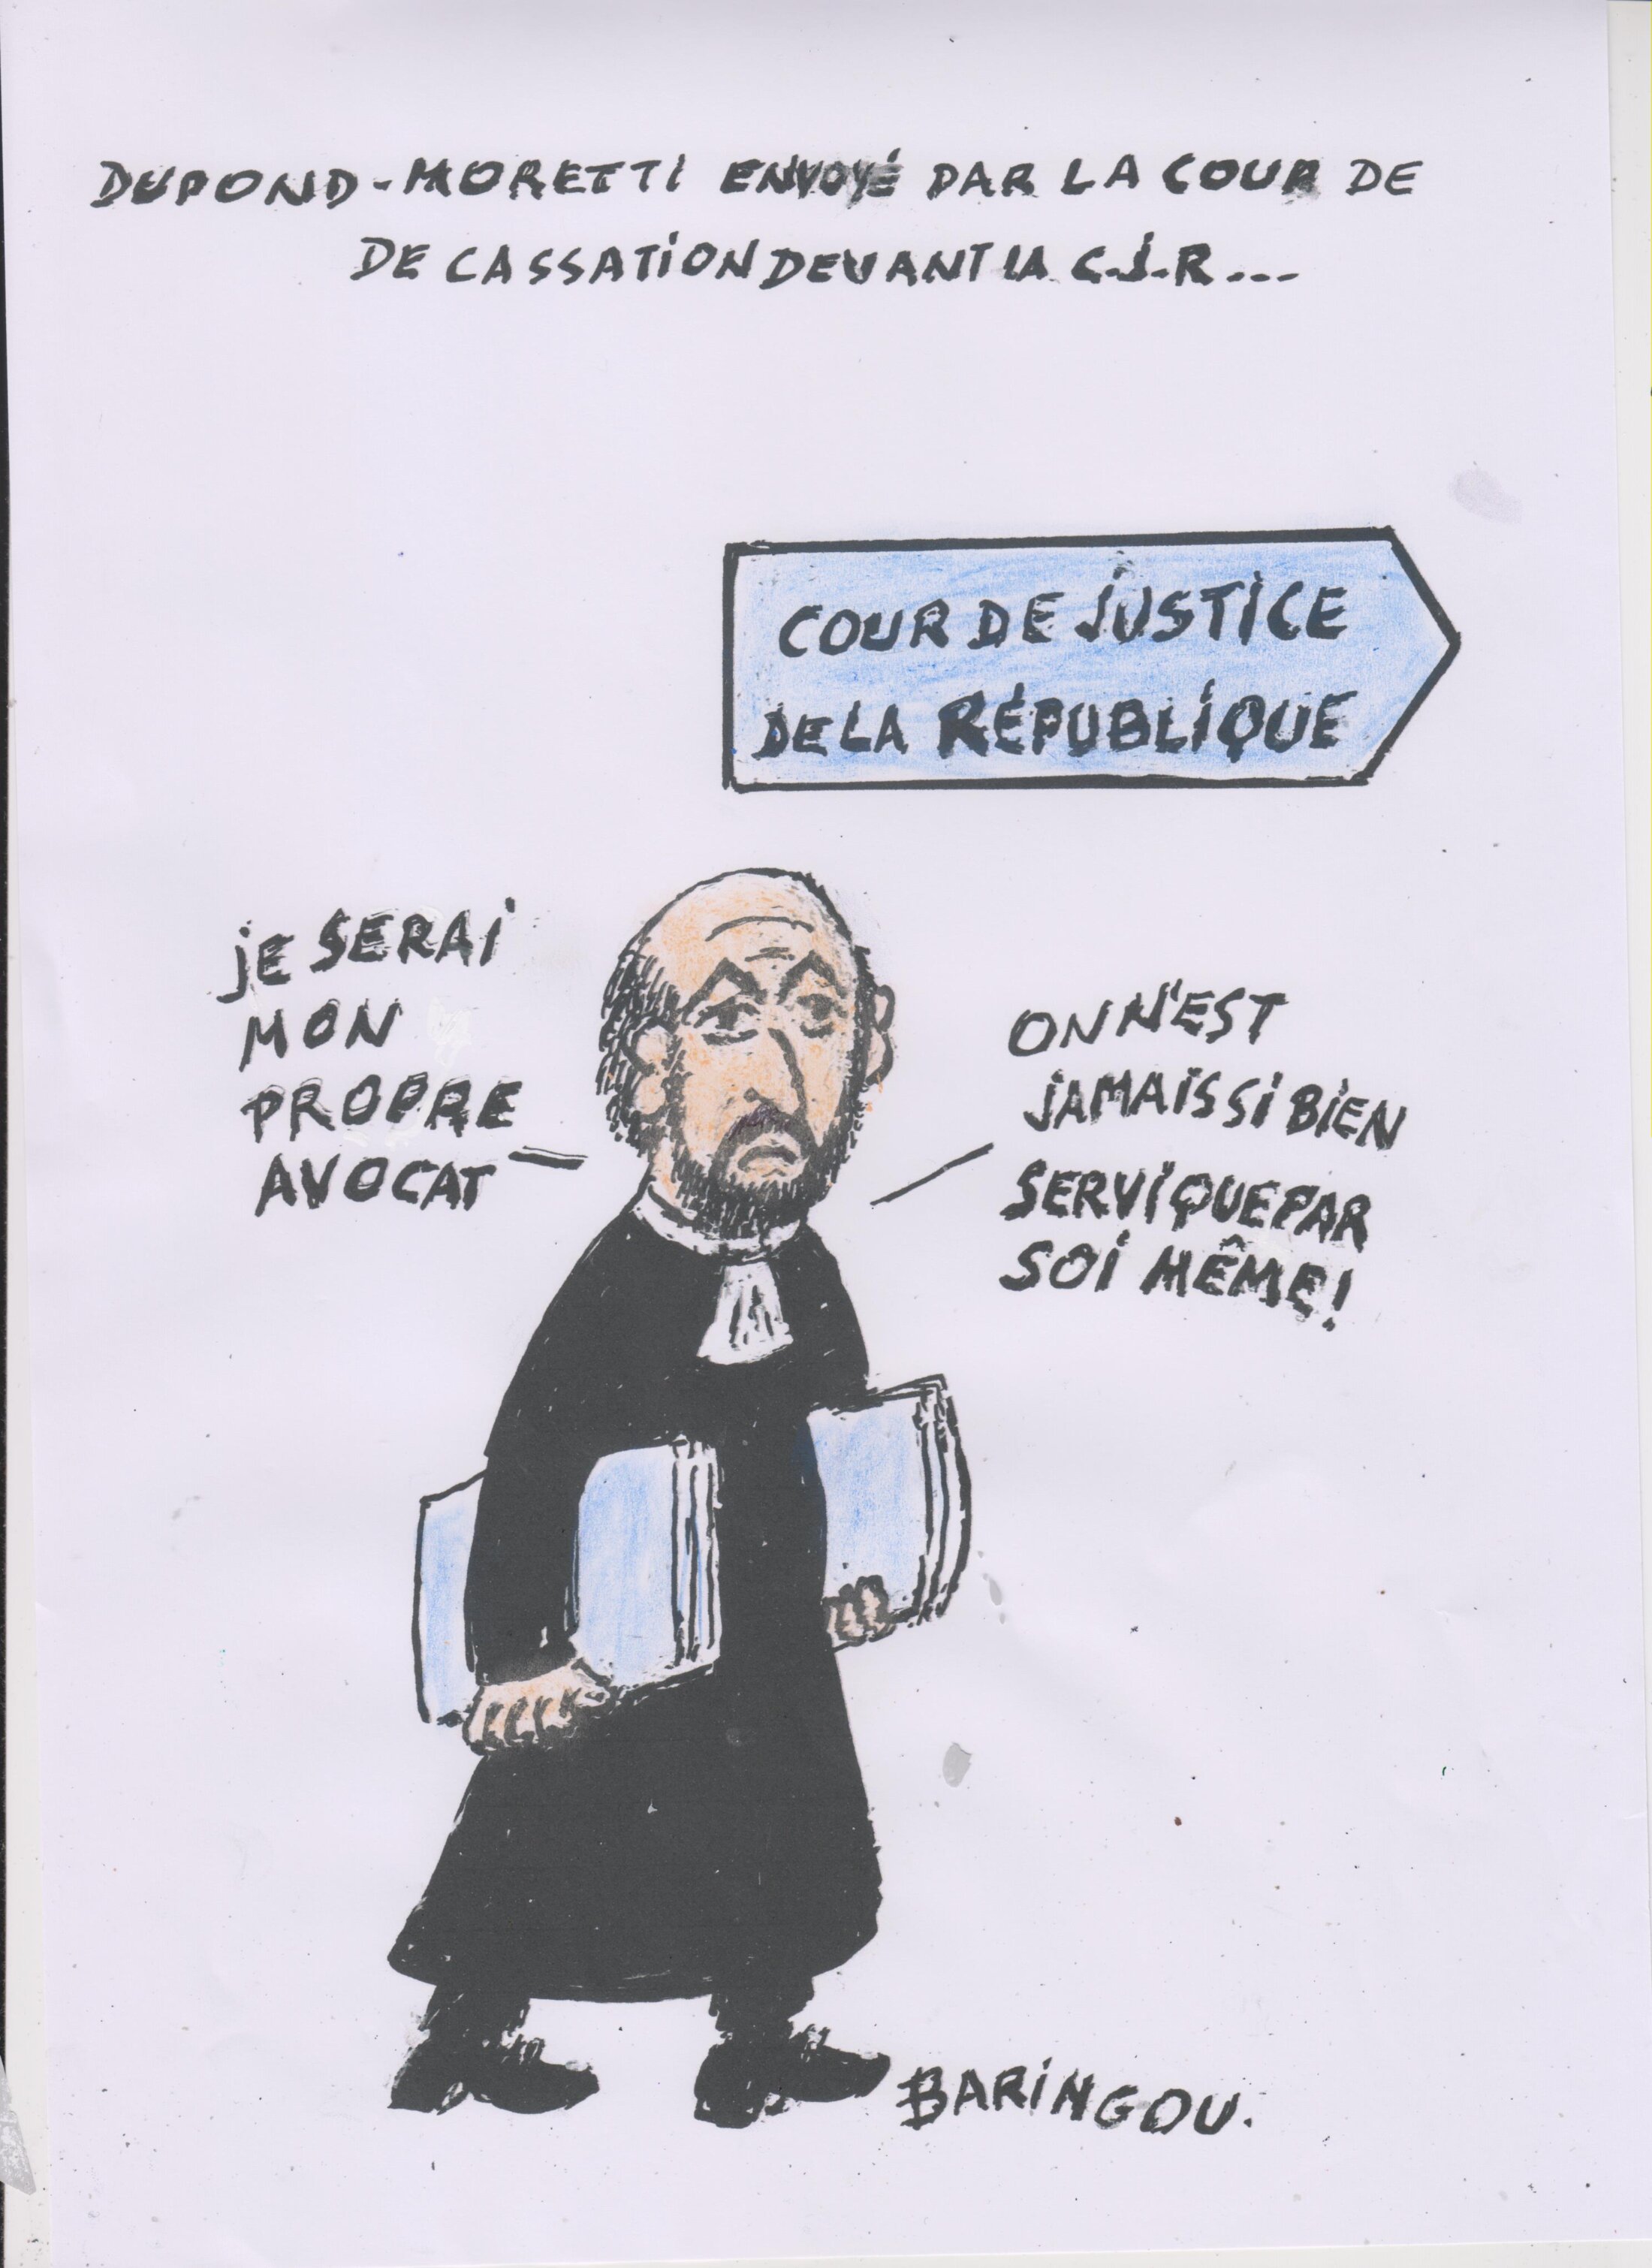 DUPOND-MORETTI ENVOYÉ PAR LA COUR DE
DE CASSATION DEVANT LA C.J.R...
COUR DE JUSTICE
DE LA RÉPUBLIQUE
JE SERAI
MON
PROPRE
AVOCAT
ON N'EST
JAMAIS SI BIEN
SERVI QUE PAR
SOI MÊME!
BARINGOU.